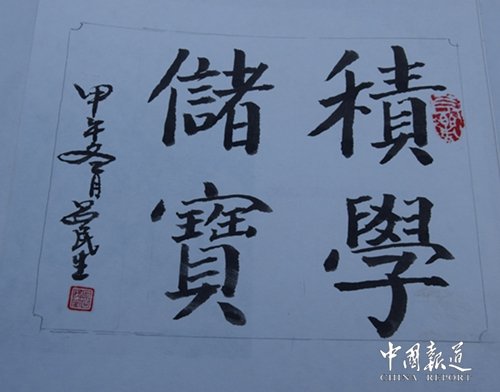 積學
儲寶
甲午
月
民生
中國報道
CHINA REPORT